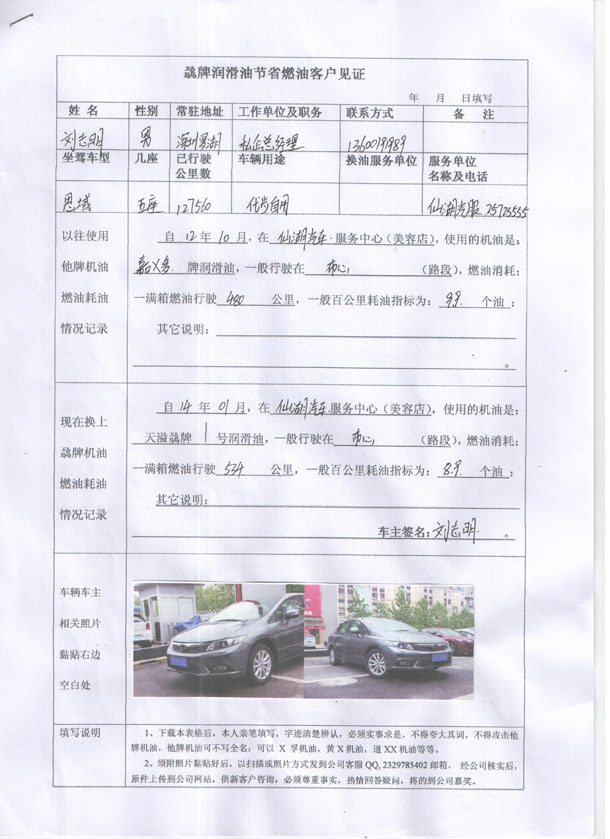 骉牌润滑油节省燃油客户见证
年 月 日填写
姓 名 性别 常驻地址 工作单位及职务 联系方式 备 注
刘志明 男 深圳罗湖 私企总经理 1360019989
坐驾车型 几座 已行驶公里数 车辆用途 换油服务单位 服务单位名称及电话
思域 五座 127560 代步自用 仙湖汽服 25725535
以往使用
他牌机油
燃油耗油
情况记录
自 12 年 10 月，在 仙湖汽车·服务中心（美容店），使用的机油是：
嘉义务 牌润滑油，一般行驶在 市心 （路段），燃油消耗：
一满箱燃油行驶 480 公里，一般百公里耗油指标为： 9.9 个油；
其它说明：
。
现在换上
骉牌机油
燃油耗油
情况记录
自 14 年 01 月，在 仙湖汽车·服务中心（美容店），使用的机油是：
天溢骉牌 1 号润滑油，一般行驶在 市心 （路段），燃油消耗：
一满箱燃油行驶 534 公里，一般百公里耗油指标为： 8.9 个油；
其它说明：
车主签名：刘志明 。
车辆车主
相关照片
黏贴右边
空白处
填写说明
1、下载本表格后，本人亲笔填写，字迹清楚辨认，必须实事求是，不得夸大其词，不得攻击他
牌机油，他牌机油可不写全名；可以 X 孚机油，黄 X 机油，道 XX 机油等等。
2、须附照片黏贴好后，以扫描或照片方式发到公司客服 QQ, 2329785402 邮箱， 经公司核实后，
原件上传到公司网站，供新客户咨询，必须尊重事实，热情回答疑问，将的到公司嘉奖。